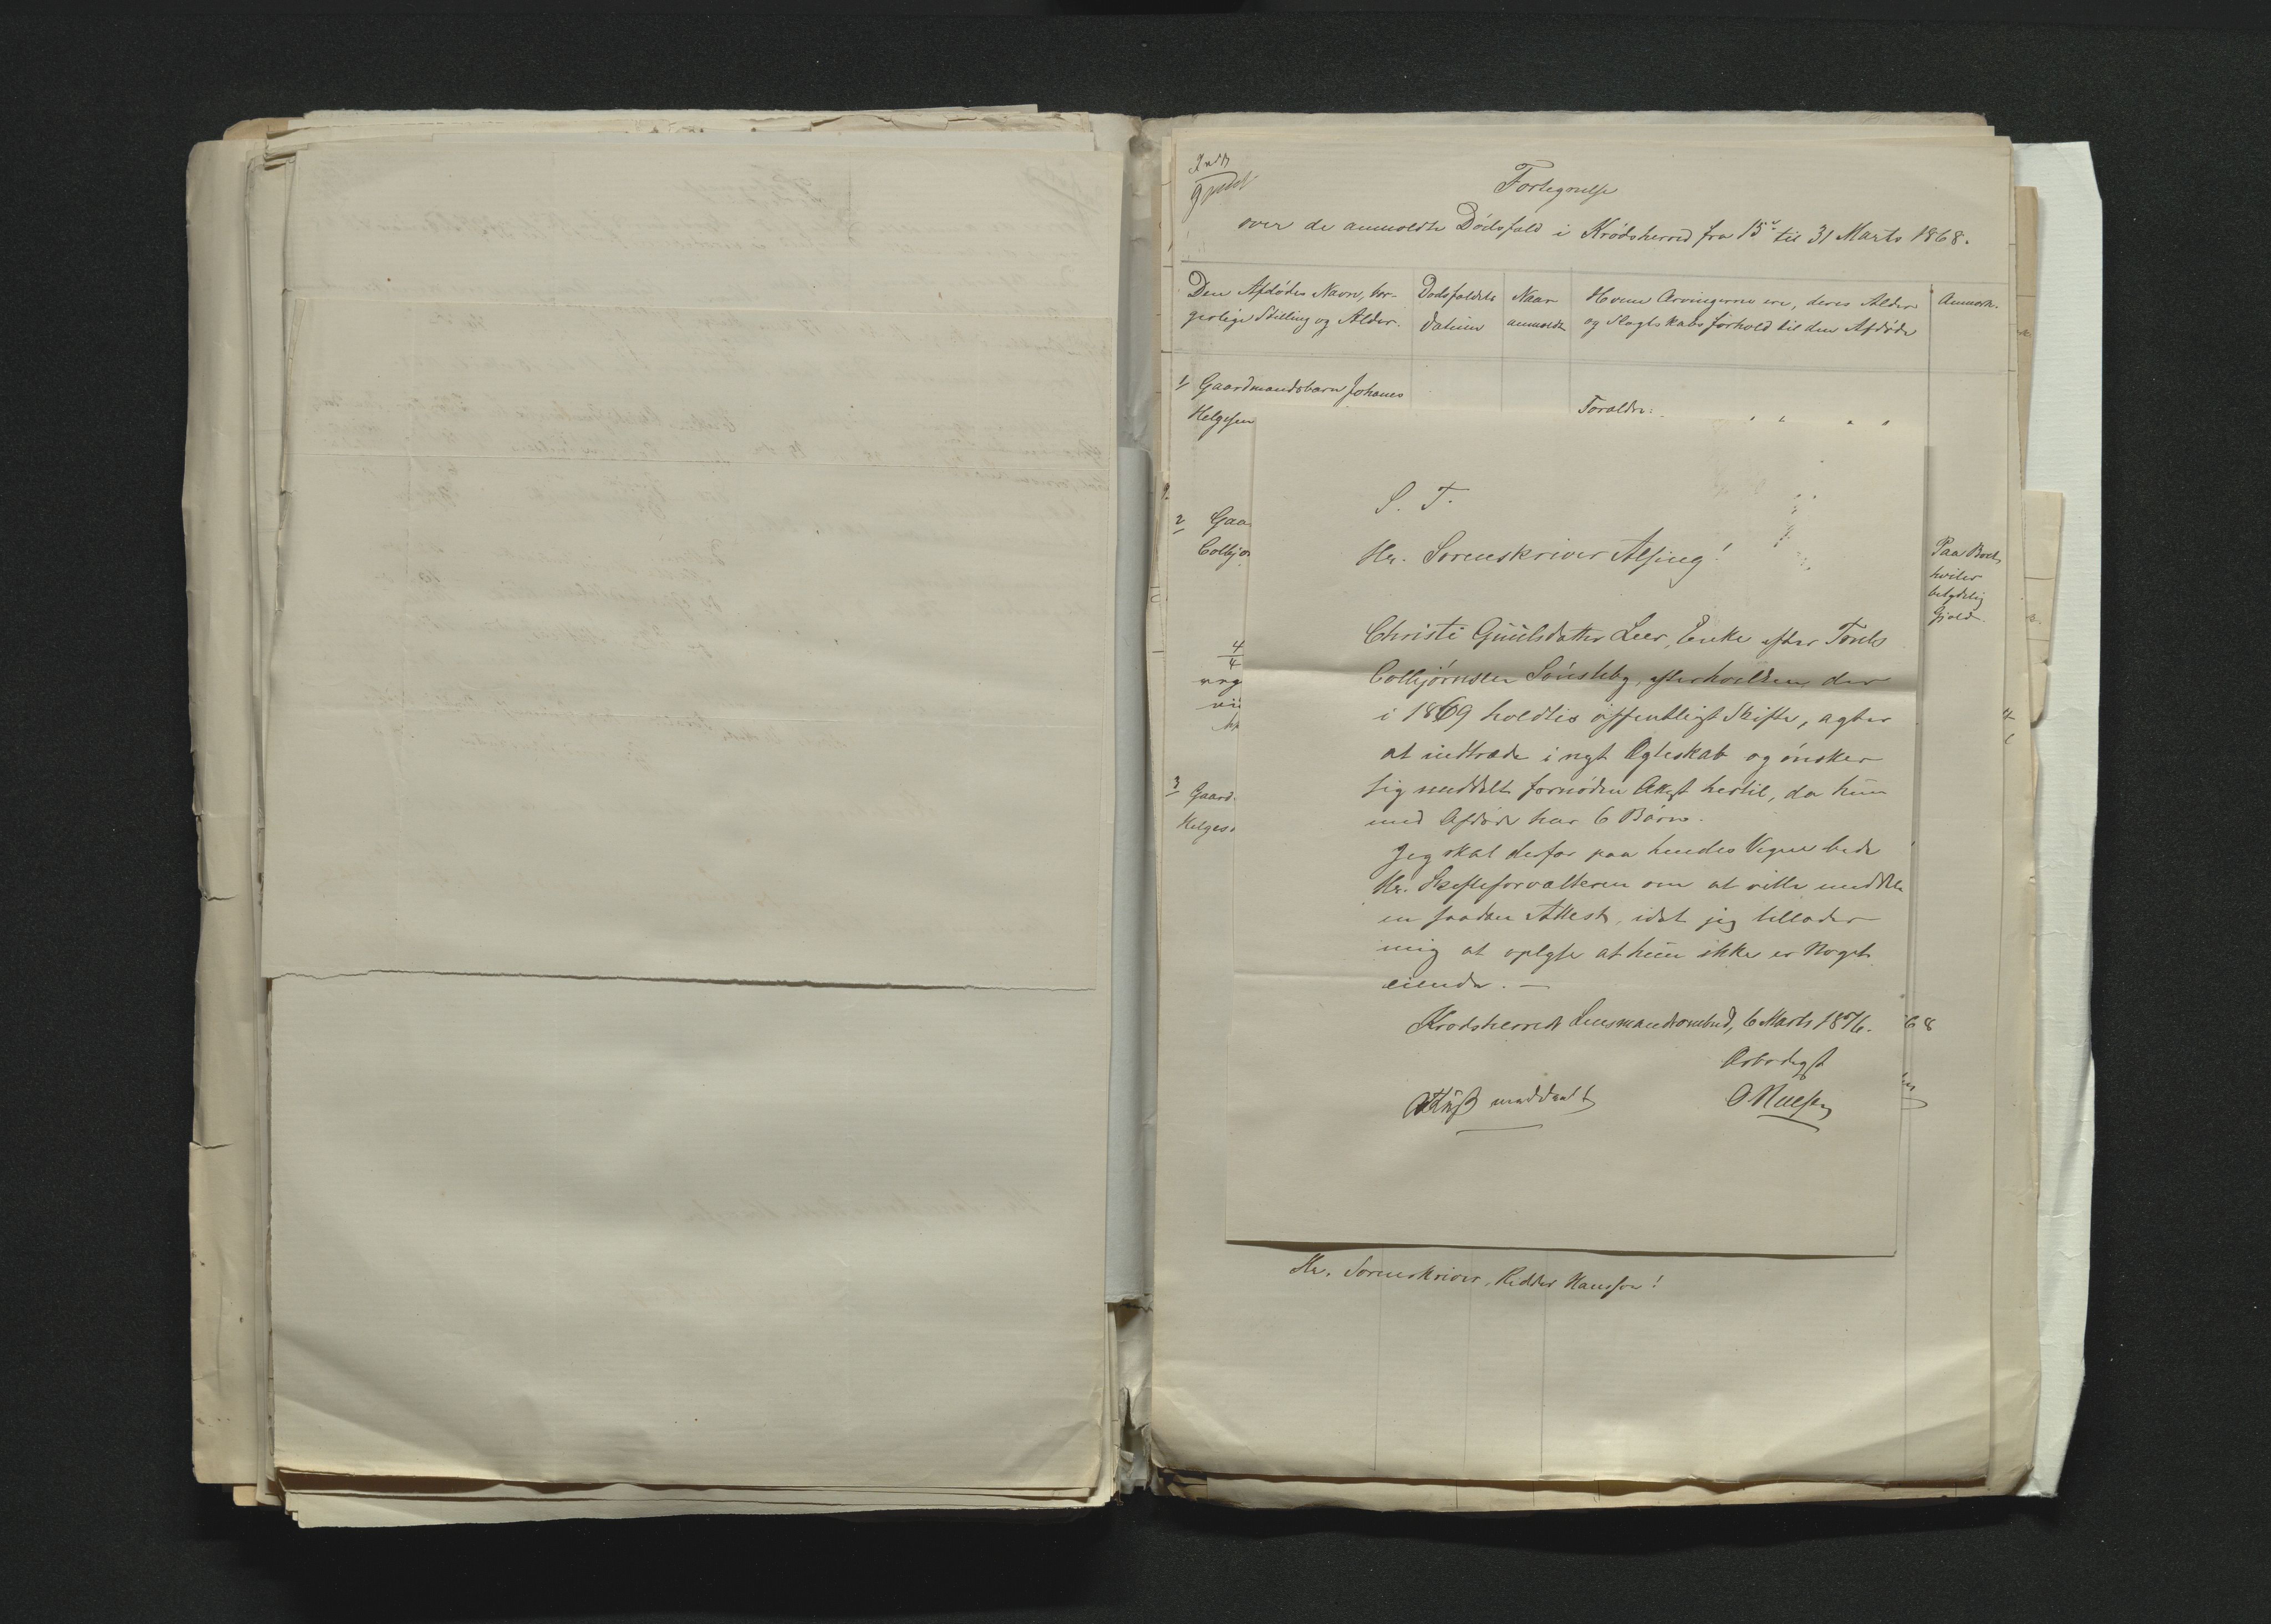 Fortegnelse
over de anmeldte Dödsfald i Krödsherred fra 15de til 31 Marts 1868.
Den Afdödes Navn, bor-
gerlige Stilling og Alder.
Dödsfaldets
Datum
Naar
anmeldt
Hvem Arvingerne ere, deres Alder
og Slægtskabsforhold til den Afdöde
Anmærk.
1 Gaardmandsbarn Johanes
Helgesen
Forældre:
2 Gaa
Colbjö
Paa Boet
hviler
betydelig
Gjæld.
4
4
3 Gaard
Helges
S. T.
Hr. Sorenskriver Alsing!
Christi Guulsdatter Leer, Enke efter Torels
Colbjörnsen Sönsteby, efter hvilken der
i 1869 holdtes offentligt Skifte, agter
at indtræde i nyt Ægteskab og önsker
sig meddelt fornöden Attest hertil, da hun
med Afdöde har 6 Börn.
Jeg skal derfor paa hendes Vegne bede
Hr. Skifteforvalteren om at ville meddele
en saadan Attest, idet jeg tillader
mig at oplyse at hun ikke er Noget
eiende. —
Krödsherred Lensmandsombud, 6 Marts 1876.
68
Ærbödigst
O Nielsen
Attest meddeelt
Hr. Sorenskriver, Ridder Hansson!